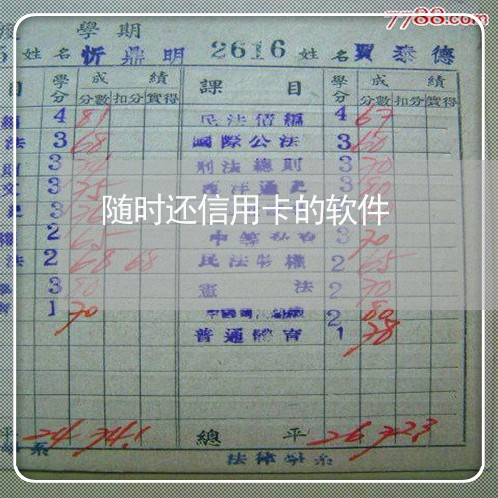 7788.com
學期
姓名 忻鼎明 2616 姓名 賈泰德
目 學分 成績 課目 學分 成績
分數 扣分 實得 分數 扣分 實得
4 81 民法債編 4 67
法 3 68 國際公法 3 60
3 刑法總則 3 70
3 75 西洋通史 3 80
随时还信用卡的软件
2 65 3 70
法 2 68 68 民法物權 2 65
3 80 憲法 2 70
1 70 2 80
普通體育 1 78
24 74.1 總平 26 72.3
系 法律學系